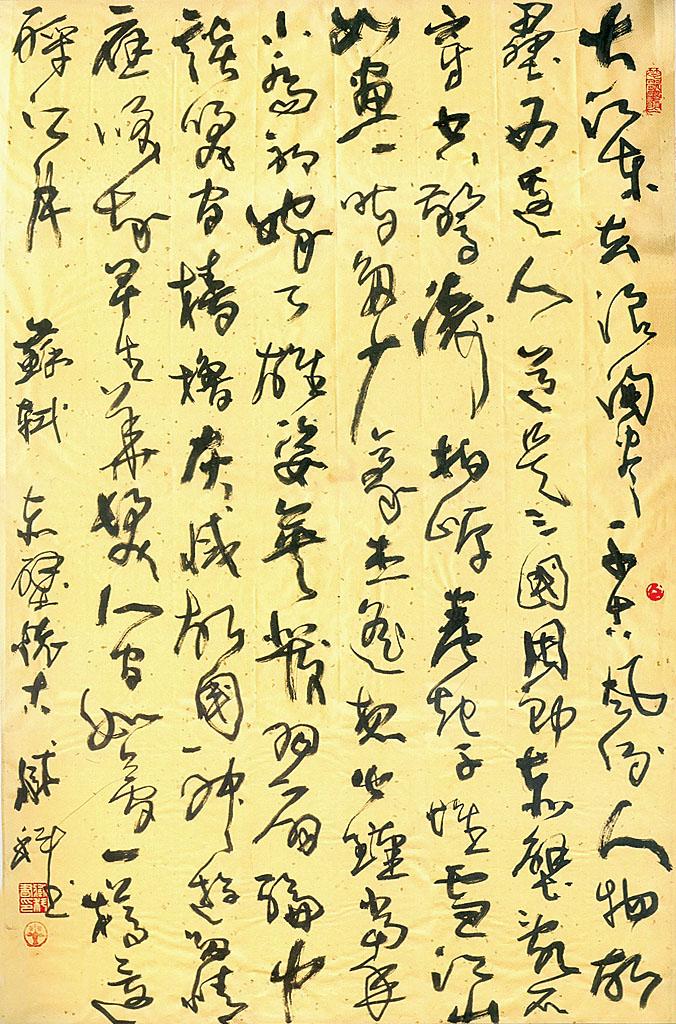 大江東去浪淘盡千古風流人物故
壘西邊人道是三國周郎赤壁亂石
穿空驚濤拍岸卷起千堆雪江山
如畫一時多少豪杰遙想公瑾當年
小喬初嫁了雄姿英發羽扇綸巾
談笑間檣櫓灰滅故國神遊多情
應笑我早生華髮人間如夢一樽還
酹江月 蘇軾 赤壁懷古 書